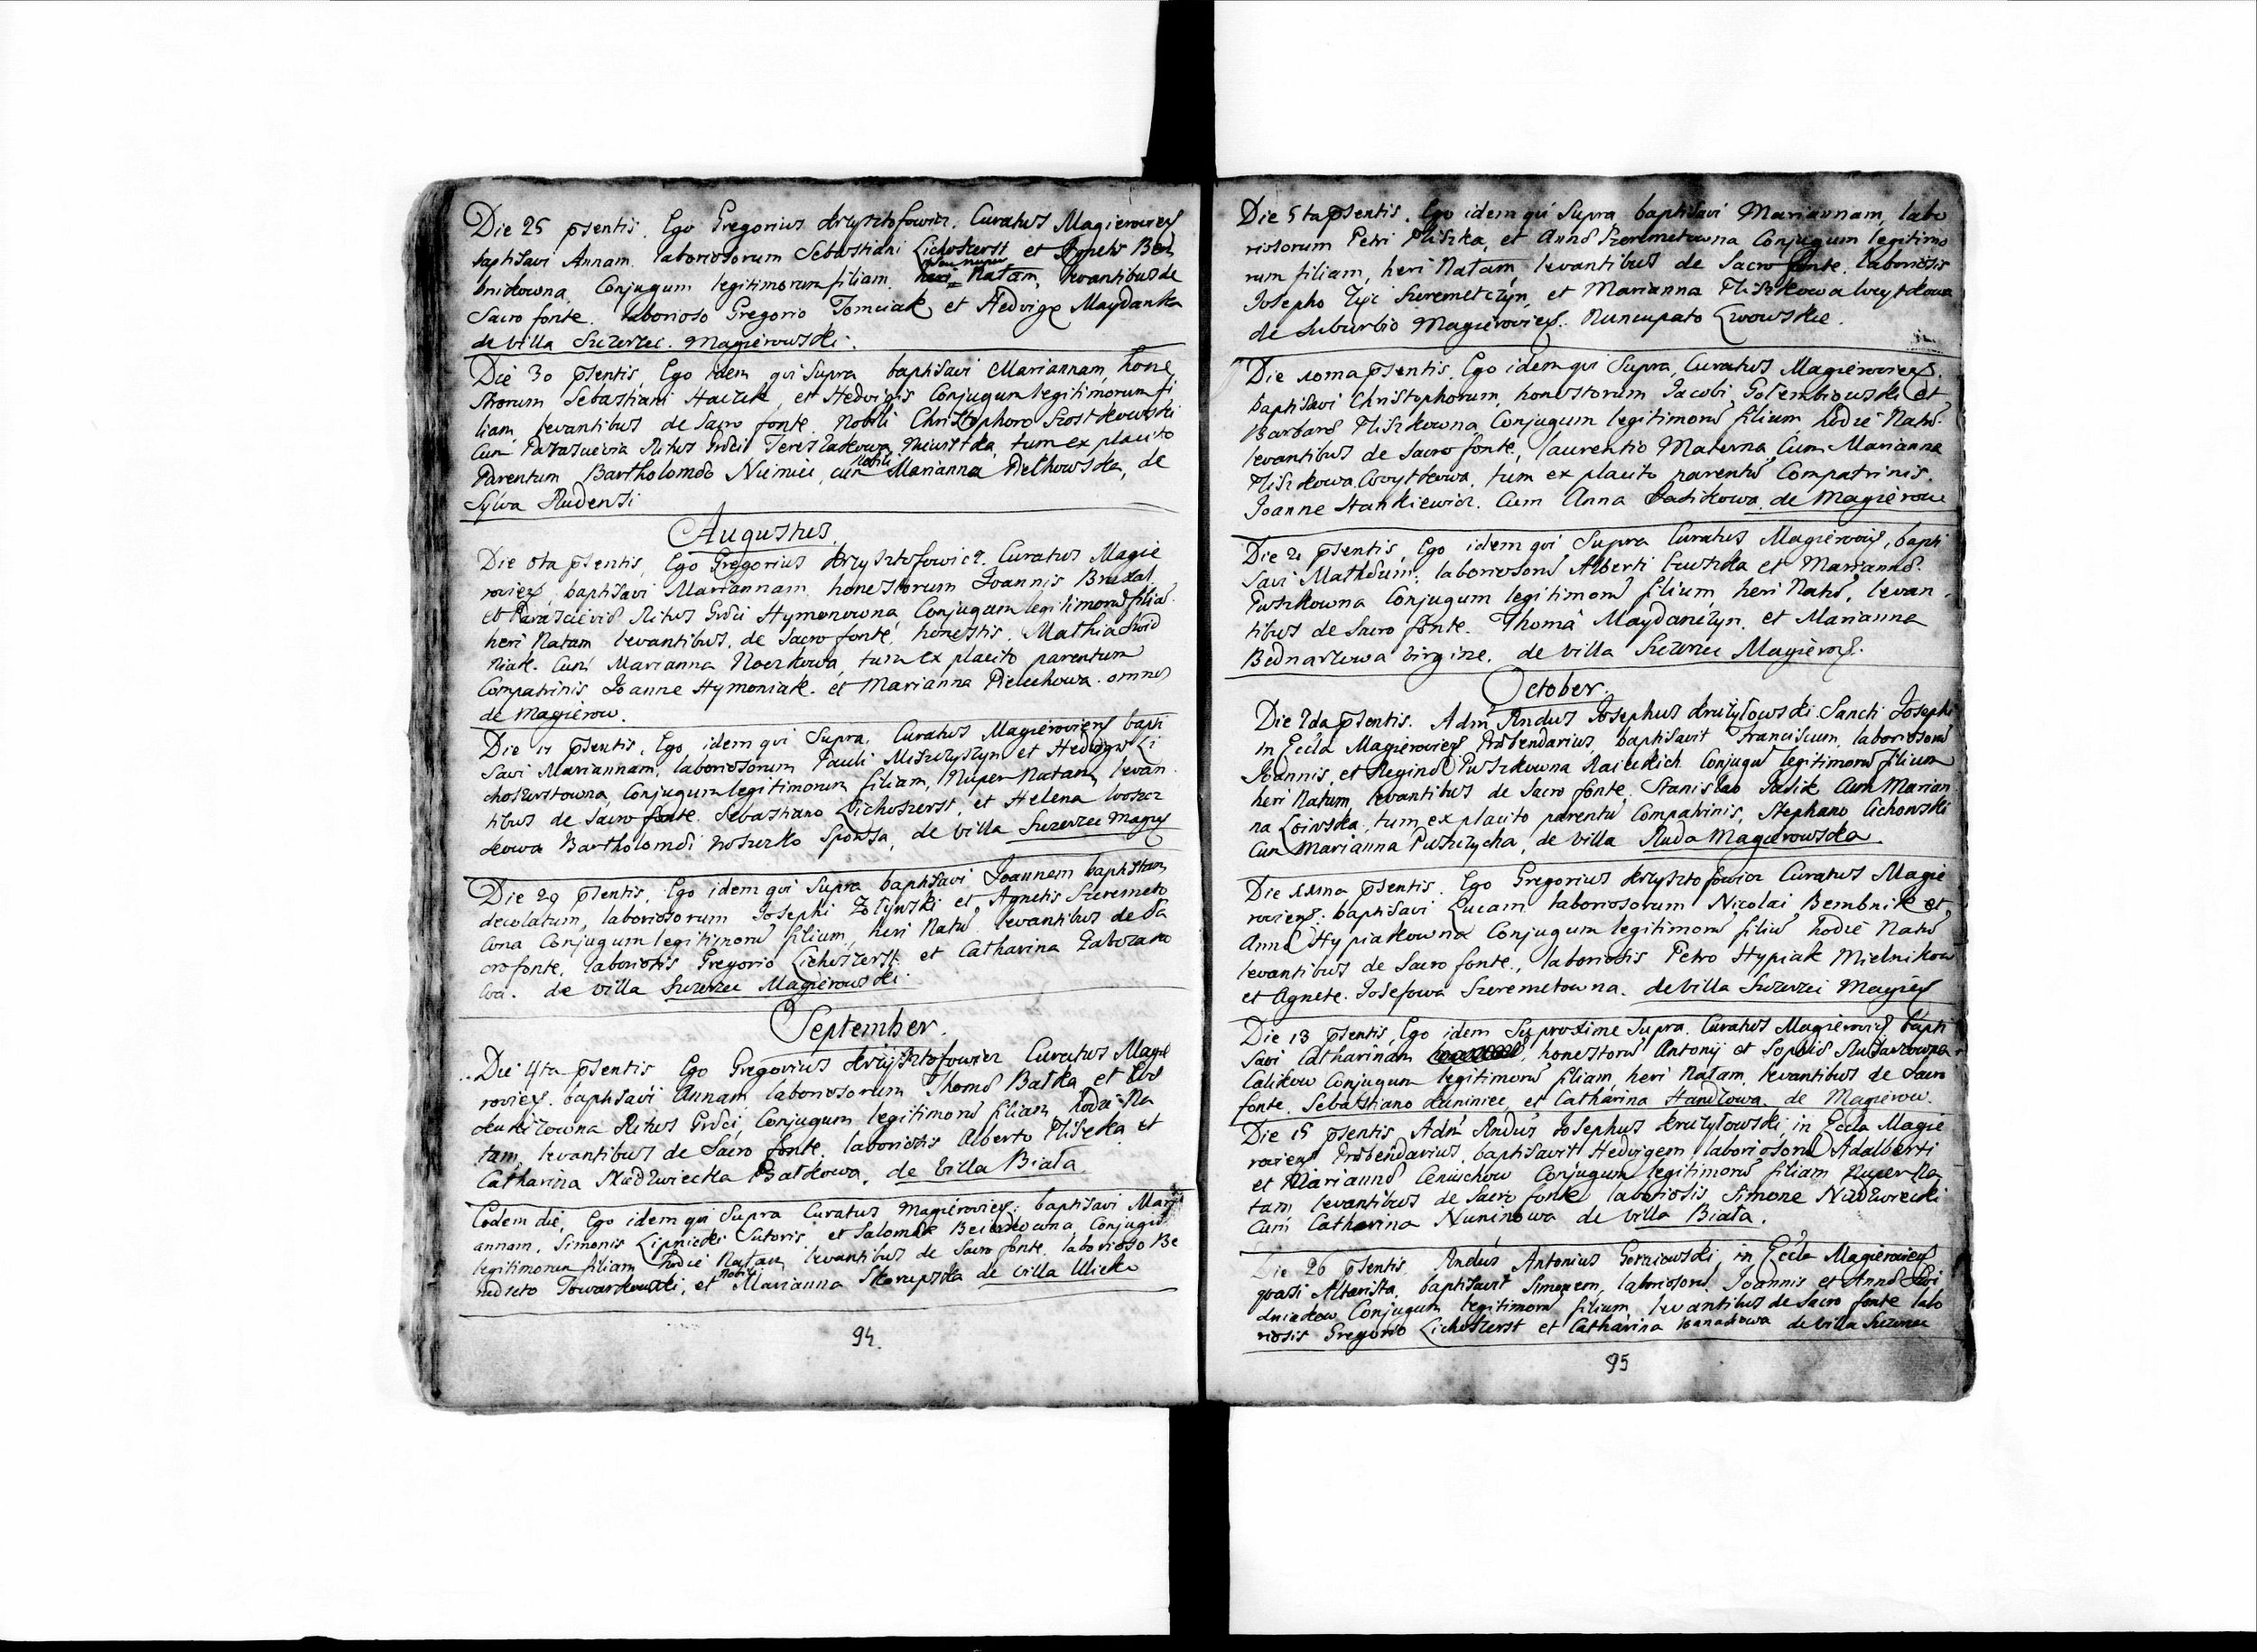 Die 25 psentis. Ego Gregorius Krzysztofowicz. Curatus Magierovieñ
baptisavi Annam. laboriosorum Sebastiani Lichoszerst et Agnetis Bem
bnikowna, Conjugum legitimorum filiam. heri nuper Natam, levantibus de
Sacro fonte. laborioso Gregorio Tomciak et Hedvige Maydanka
de villa Szczerzec. Magierowski.
Die 30 psentis, Ego idem qui Supra baptisavi Mariannam, hone
storum Sebastiani Haczek, et Hedvigis Conjugum legitimorum fi
liam, levantibus de Sacro fonte. Nobili Christophoro Szostkowski
Cum Parascievia Ritus Grӕci Tereszkowa, tum ex placito
Parentum Bartholomӕo Niemiec, cum Nobili Marianna Pielhowska, de
Sylva Rudensi
Augustus.
Die 8ta psentis, Ego Gregorius Krzysztofowicz. Curatus Magie
rovieñ, baptisavi Mariannam honestorum Joannis Bruxal.
et Parascievis Ritus Grӕci Hymonowna, Conjugum legitimorũ filiã
heri Natam levantibus, de Sacro fonte, honestis. Mathia Swid
niak. Cum Marianna Noczkowa, tum ex placito parentum
Compatrinis Joanne Hymoniak. et Marianna Pielechowa. omnes
de Magierow.
Die 11 psentis, Ego idem qui Supra, Curatus Magierovieñ bapti
Savi Mariannam, laboriosorum Pauli Miszczyszyn et Hedvigis Li
choszerstowna, Conjugum legitimorum filiam, Nuper Natam, levan
tibus de Sacro fonte. Sebastiano Lichoszerst, et Helena Woszcz
kowa Bartholomӕi Woszczko Sponsa, de villa Szczerzec Magieř
Die 29 psentis, Ego idem qui Supra baptisavi Joannem baptistam
decolatum, laboriosorum Josephi Zołynski et Agnetis Szeremeto
wna Conjugum legitimorũ filium, heri Natũ levantibus de Sa
cro fonte, laboriosis Gregorio Lichoszerst. et Catharina Jaworsko
wa. de villa Szczerzec Magierowski
September.
Die 4ta psentis Ego Gregorius Krzysztofowicz Curatus Magie
rovieñ. baptisavi Annam laboriosorum Thomӕ Bałka et Evӕ
Ritus Grӕci, Conjugum legitimorũ filiam, hodie Na
tam, levantibus de Sacro fonte. laboriosis Alberto Pliszka et
Catharina Bałkowa, de villa Biała
Eodem die, Ego idem qui Supra Curatus Magierovieñ: baptisavi Mari
annam. Simonis Lipnicki Sutoris, et Salomea Conjugũ
legitimorum filiam hodie Natam levantibus de Sacro fonte. laborioso Be
nedicto Towarkowski, et Nobili Marianna Skorupska de villa Ulicko
94.
Die 5ta psentis. Ego idem qui Supra baptisavi Mariannam, labo
riosorum Petri Pliszka, et Annӕ Szeremetowna Conjugum legitimo
rum filiam, heri Natam, levantibus de Sacro fonte. laboriosis
Josepho Zyc Szeremetczyn, et Marianna Pliszkowa Woytkowa
de Suburbio Magierovieñ. Nuncupato Lwowskie.
Die 10ma psentis, Ego idem qui Supra, Curatus Magierovieñ.
baptisavi Christophorum, honestorum Jacobi Gołembiowski et
Barbarӕ Pliszkowna Conjugum legitimorũ filium hodie Natũ.
levantibus de Sacro fonte, laurentio Materna, Cum Marianna
Pliszkowa Woytkowa. tum ex placito parentũ Compatrinis.
Joanne Stankiewicz. Cum Anna Jasikowa, de Magierow
Die 21 psentis, Ego idem qui Supra Curatus Magierovieñ, bapti
Savi Mathӕum: laboriosorũ Alberti et Mariannӕ.
Puszkowna Conjugum legitimorũ filium, heri Natũ, levan
tibus de Sacro fonte. Thoma Maydanczyn. et Marianna
Bednarzowa virgine. de villa Szczerzec Magieroř.
October.
Die 2da psentis. Adm̃ Rñdus Josephus Kruzyłowski Sancti Josephi
in Eccla Magierovieñ Prӕbendarius, baptisavit Franciscum, laboriosorũ
Joannis, et Reginӕ Puszkowna Raicekich Conjugũ legitimorũ filium
heri Natum, levantibus de Sacro fonte. Stanislao Jasik Cum Marian
na Loiwska, tum ex placito parentũ Compatrinis, Stephano Cichowski
Cum Marianna Puszczycha, de villa Ruda Magierowska
Die 11ma psentis. Ego Gregorius Krzysztofowicz Curatus Magie
rovieñ: baptisavi Lucam laboriosorum Nicolai Bembnik et
Annӕ Hypiakowna Conjugum legitimorũ filiũ hodie Natũ
levantibus de Sacro fonte, laboriosis Petro Hypiak Mielnikow
et Agnete. Josefowa Szeremetowna. de villa Szczerzec Magieř
Die 13 psentis, Ego idem Sũ proxime Supra. Curatus Magierovieñ bapti
Savi Catharinam, honestorũ Antonij et Sophiӕ Rudarzowna
Calikow Conjugum legitimorũ filiam, heri Natam. levantibus de Sacro
fonte. Sebastiano Kuniniec, et Catharina Handzowa. de Magierow.
Die 15 psentis, Adm̃ Rñdus Josephus Kruzyłowski in Eccla Magie
rovieñ Prӕbendarius, baptisavit Hedvigem, laboriosorũ Adalberti
et Mariannӕ Conjugum legitimorũ filiam Nuper Na
tam levantibus de Sacro fonte laboriosis Simone
Cum Catharina Nuninowa de villa Biała.
Die 26 psentis. Rñdus Antonius Gorniowski, in Eccla Magierovieñ
quasi Altarista, baptisavit Simonem, laboriosorũ. Joannis et Annӕ Swi
dniakow Conjugum legitimorũ filium, levantibus de Sacro fonte labo
riosis Gregorio Lichoszerst et Catharina Banachowa de villa Szczerzec
95